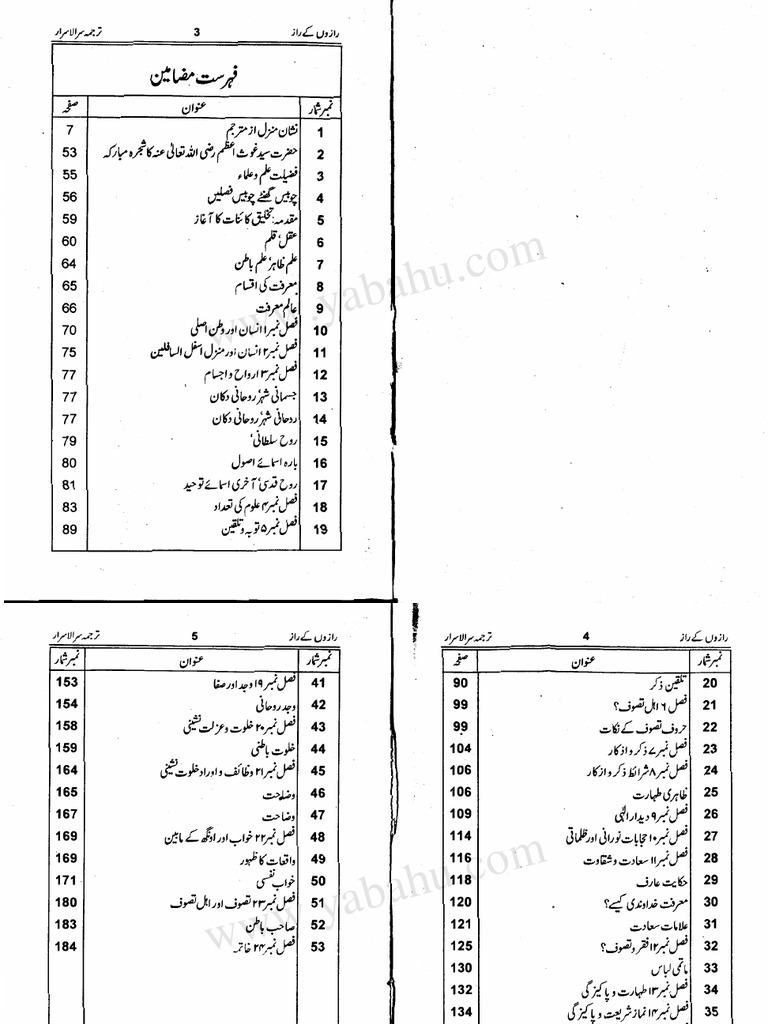 رازوں کے راز 3 ترجمہ سر الاسرار
فہرست مضامین
نمبر شمار عنوان صفحہ
1 نشان منزل از مترجم 7
2 حضرت سید غوث اعظم رضی اللہ تعالیٰ عنہ کا شجرہ مبارکہ 53
3 فضیلت علم و علماء 55
4 چوبیس گھنٹے چوبیس فصلیں 56
5 مقدمہ: تخلیق کائنات کا آغاز 59
6 عقل، قلم 60
7 علم ظاہر، علم باطن 64
8 معرفت کی اقسام 65
9 عالم معرفت 66
10 فصل نمبر ۱ انسان اور وطن اصلی 70
11 فصل نمبر ۲ انسان اور منزل اسفل السافلین 75
12 فصل نمبر ۳ ارواح و اجسام 77
13 جسمانی شہر، روحانی دکان 77
14 روحانی شہر، روحانی دکان 77
15 روح سلطانی، 79
16 بارہ اسمائے اصول 80
17 روح قدسی، آخری اسمائے توحید 81
18 فصل نمبر ۴ علوم کی تعداد 83
19 فصل نمبر ۵ توبہ و تلقین 89
رازوں کے راز 4 ترجمہ سر الاسرار
نمبر شمار عنوان صفحہ
20 تلقین ذکر 90
21 فصل ۶ اہل تصوف؟ 99
22 حروف تصوف کے نکات 99
23 فصل نمبر ۷ ذکر و اذکار 104
24 فصل نمبر ۸ شرائط ذکر و ازکار 106
25 ظاہری طہارت 106
26 فصل نمبر ۹ دیدار الٰہی 109
27 فصل نمبر ۱۰ حجابات نورانی اور ظلماتی 114
28 فصل نمبر ۱۱ سعادت و شقاوت 116
29 حکایت عارف 118
30 معرفت خداوندی کیسے؟ 120
31 علامات سعادت 121
32 فصل نمبر ۱۲ فقر و تصوف؟ 125
33 ماتمی لباس 130
34 فصل نمبر ۱۳ طہارت و پاکیزگی 132
35 فصل نمبر ۱۴ نماز شریعت و پاکیزگی 134
رازوں کے راز 5 ترجمہ سر الاسرار
نمبر شمار عنوان نمبر شمار
41 فصل نمبر ۱۹ وجد اور صفا 153
42 وجد روحانی 154
43 فصل نمبر ۲۰ خلوت و عزلت نشینی 158
44 خلوت باطنی 159
45 فصل نمبر ۲۱ وظائف و اوراد خلوت نشینی 164
46 وضاحت 165
47 وضاحت 167
48 فصل نمبر ۲۲ خواب اور اونگھ کے مابین 169
49 واقعات کا ظہور 169
50 خواب نفسی 171
51 فصل نمبر ۲۳ تصوف اور اہل تصوف 180
52 صاحب باطن 183
53 فصل نمبر ۲۴ خاتمہ 184
www.yabahu.com
www.yabahu.com